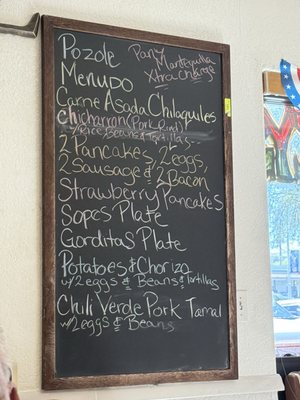 Pozole
Pan y
Mantequilla
Xtra charge
Menudo
Carne Asada Chilaquiles
Chicharron (Pork Rind)
w/Rice Beans & Tortillas
2 Pancakes, 2 eggs,
2 Sausage & 2 Bacon
Strawberry Pancakes
Sopes Plate
Gorditas Plate
Potatoes & Chorizo
w/ 2 eggs & Beans & Tortillas
Chili Verde Pork Tamal
w/ 2 eggs & Beans